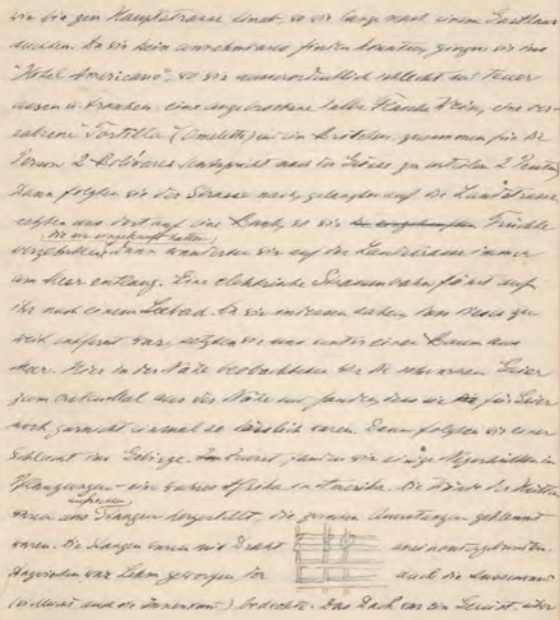 wie bis zur Hauptstrasse hinab, wo wir lange nach einem Gasthaus
suchten. Da wir kein annehmbares finden konnten, gingen wir ins
"Hotel Americano", wo wir ausserordentlich schlecht und teuer
assen u. tranken: eine angebrochene halbe Flasche Wein, eine
Tortilla (Omelette) u. ein Brötchen, zusammen für die
Person 2 Bolivares
Dann folgten wir der Strasse nach, gelangten auf die Landstrasse
setzten uns dort auf eine Bank, wo wir Früchte
die wir eingekauft hatten
verzehrten. Dann wanderten wir auf der Landstrasse immer
am Meer entlang. Eine elektrische Strassenbahn fährt auf
ihr nach einem Seebad. Da wir einsehen dass dieses zu
weit entfernt war, setzten wir uns unter einen Baum am
Meer. Hier in der Nähe beobachteten wir die schwarzen Geier
zum erstenmal aus der Nähe und fanden, dass sie für Geier
noch garnicht einmal so hässlich waren. Dann folgten wir einer
Schlucht ins Gebirge. Zuerst fanden wir einige Negerhütten in
Pflanzungen - ein wahres Afrika in Amerika. Die Wände der Hütten
waren aus Stangen hergestellt, die zwischen
waren. Die Stangen waren mit Draht aneinandergebunden.
war Lehm geworfen, der auch die Aussenwand
(vielleicht auch die Innenwand) bedeckte. Das Dach war ein Gerüst, über